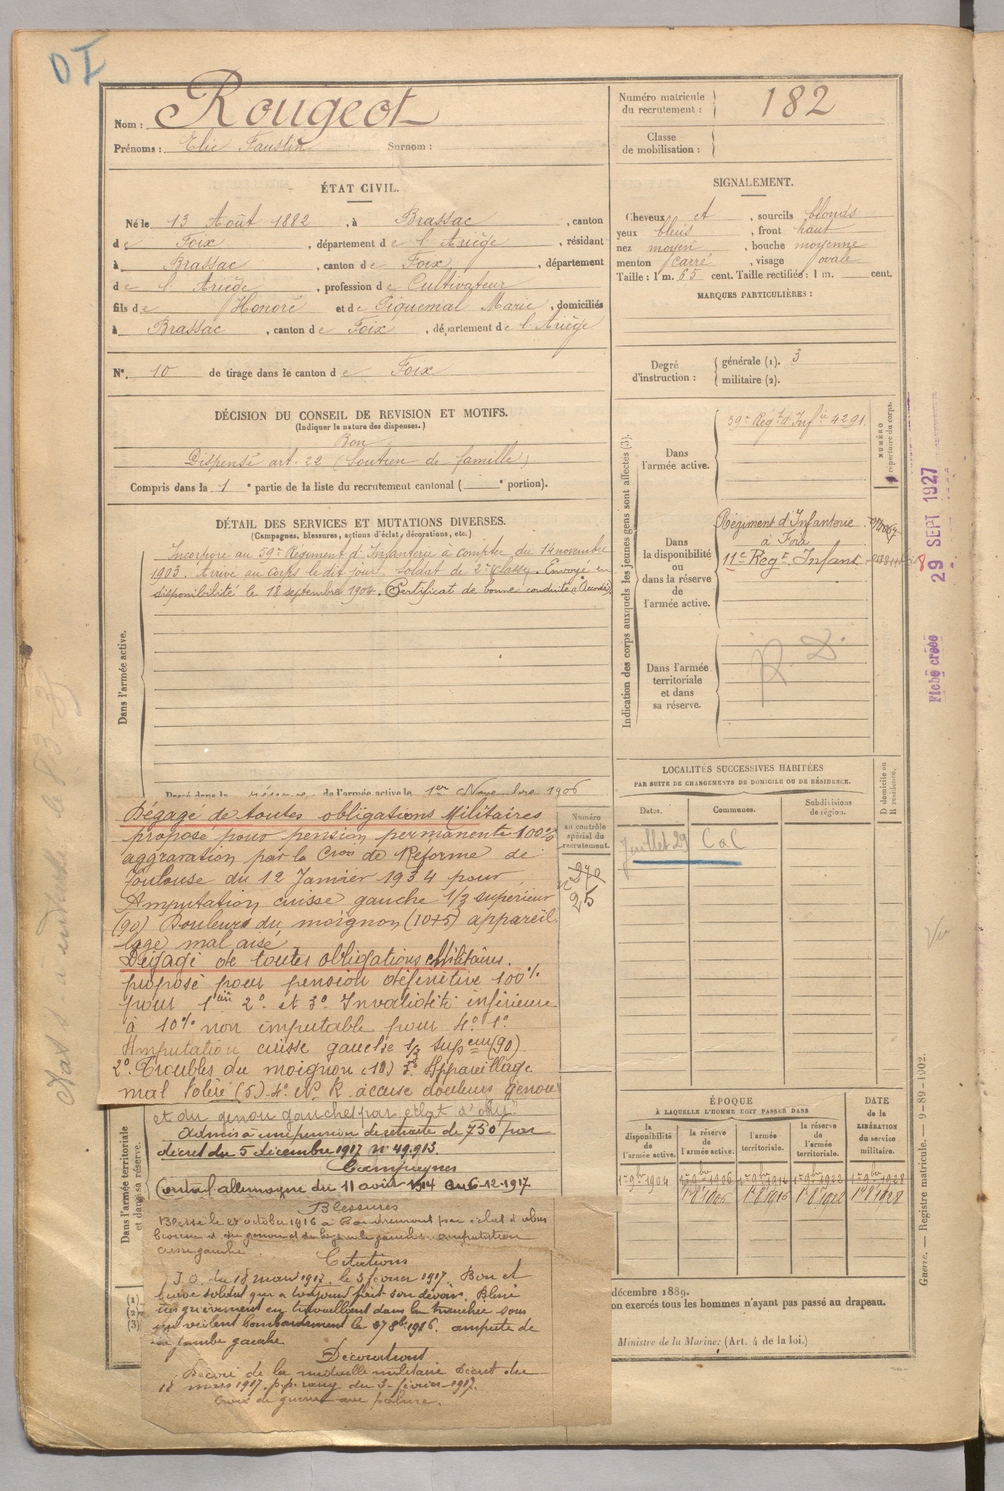 OI
Nom : Rougeot
Prénoms : Elie Faustin Surnom :
Numéro matricule du recrutement : 182
Classe de mobilisation :
ÉTAT CIVIL.
Né le 13 Août 1882, à Brassac, canton
de Foix, département de l'Ariège, résidant
à Brassac, canton de Foix, département
de l'Ariège, profession de Cultivateur
fils de Honoré et de Piquemal Marie, domiciliés
à Brassac, canton de Foix, département de l'Ariège
N°. 10 de tirage dans le canton de Foix
SIGNALEMENT.
Cheveux et, sourcils blonds
yeux bleus, front haut
nez moyen, bouche moyenne
menton carré, visage ovale
Taille : 1 m. 65 cent. Taille rectifiée : 1 m. cent.
MARQUES PARTICULIÈRES :
Degré d'instruction : générale (1). 3
militaire (2).
DÉCISION DU CONSEIL DE REVISION ET MOTIFS.
(Indiquer la nature des dispenses.)
Bon
Dispensé art. 22 (Soutien de famille)
Compris dans la 1e partie de la liste du recrutement cantonal ( e portion).
DÉTAIL DES SERVICES ET MUTATIONS DIVERSES.
(Campagnes, blessures, actions d'éclat, décorations, etc.)
Dans l'armée active.
Incorporé au 59e Régiment d'Infanterie à compter du 14 novembre
1903. Arrivé au corps le dit jour, soldat de 2e classe. Envoyé en
disponibilité le 18 septembre 1904. Certificat de bonne conduite "Accordé"
Passé dans la réserve de l'armée active le 1er Novembre 1906
Indication des corps auxquels les jeunes gens sont affectés (3).
Dans l'armée active.
59e Régt d'Infie 4291
NUMÉRO
répertoire du corps.
Dans la disponibilité ou dans la réserve de l'armée active.
Régiment d'Infanterie
à Foix
11e Regt Infant
Dans l'armée territoriale et dans sa réserve.
R. D.
Fiche créée 29 SEPT 1927
LOCALITÉS SUCCESSIVES HABITÉES
PAR SUITE DE CHANGEMENTS DE DOMICILE OU DE RÉSIDENCE.
Dates. Communes. Subdivisions de région. D domicile ou R résidence.
Juillet 29 Cal
Numéro au contrôle spécial du recrutement.
25
Dégagé de toutes obligations Militaires
proposé pour pension permanente 100%
aggravation par la Cion de Réforme de
Toulouse du 12 Janvier 1934 pour
Amputation cuisse gauche 1/3 supérieur
(90) Douleurs du moignon (10+5) appareil
lage mal aisé
Dégagé de toutes obligations Militaires.
proposé pour pension définitive 100%
pour 1° 2° et 3° Invalidité inférieure
à 10% non imputable pour 4° 1°
Amputation cuisse gauche 1/3 supeur (90)
2° Troubles du moignon (10) 3° Appareillage
mal toléré (5) 4° N. R. accuse douleurs genou
et du genou gauche par éclat d'obus
Admis à une pension de retraite de 750 par
décret du 5 décembre 1917 N° 49.913.
Campagnes
Contre l'allemagne du 11 août 1914 au 6-12-1917
Dans l'armée territoriale et dans sa réserve.
Blessures
Blessé le 27 octobre 1916 à par éclat d'obus
du genou et de la jambe gauches. amputation
cuisse gauche.
Citations
J. O. du 18 mars 1917, le 3 février 1917. Bon et
brave soldat qui a toujours fait son devoir. Blessé
très grièvement en travaillant dans la tranchée sous
un violent bombardement le 27 8bre 1916. amputé de
la jambe gauche
Décorations
Décoré de la médaille militaire Décret du
18 mars 1917. p.p. rang du 3 février 1917.
Croix de guerre avec palme.
ÉPOQUE
À LAQUELLE L'HOMME DOIT PASSER DANS
la disponibilité de l'armée active. la réserve de l'armée active. l'armée territoriale. la réserve de l'armée territoriale.
DATE de la LIBÉRATION du service militaire.
1er 9bre 1904
décembre 1889.
on exercés tous les hommes n'ayant pas passé au drapeau.
Ministre de la Marine; (Art. 4 de la loi.)
(1)
(2)
(3)
Guerre. — Registre matricule. — 9-89-1902.
Vu